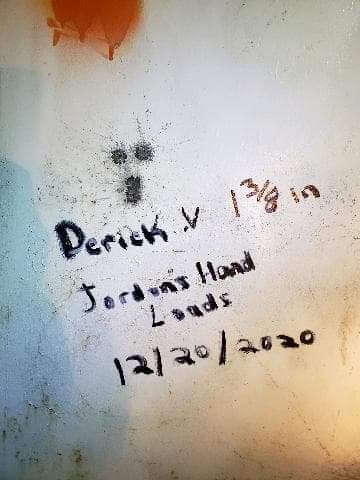 Derick V 1 3/8 in
Jordons Hand
Loads
12/20/2020